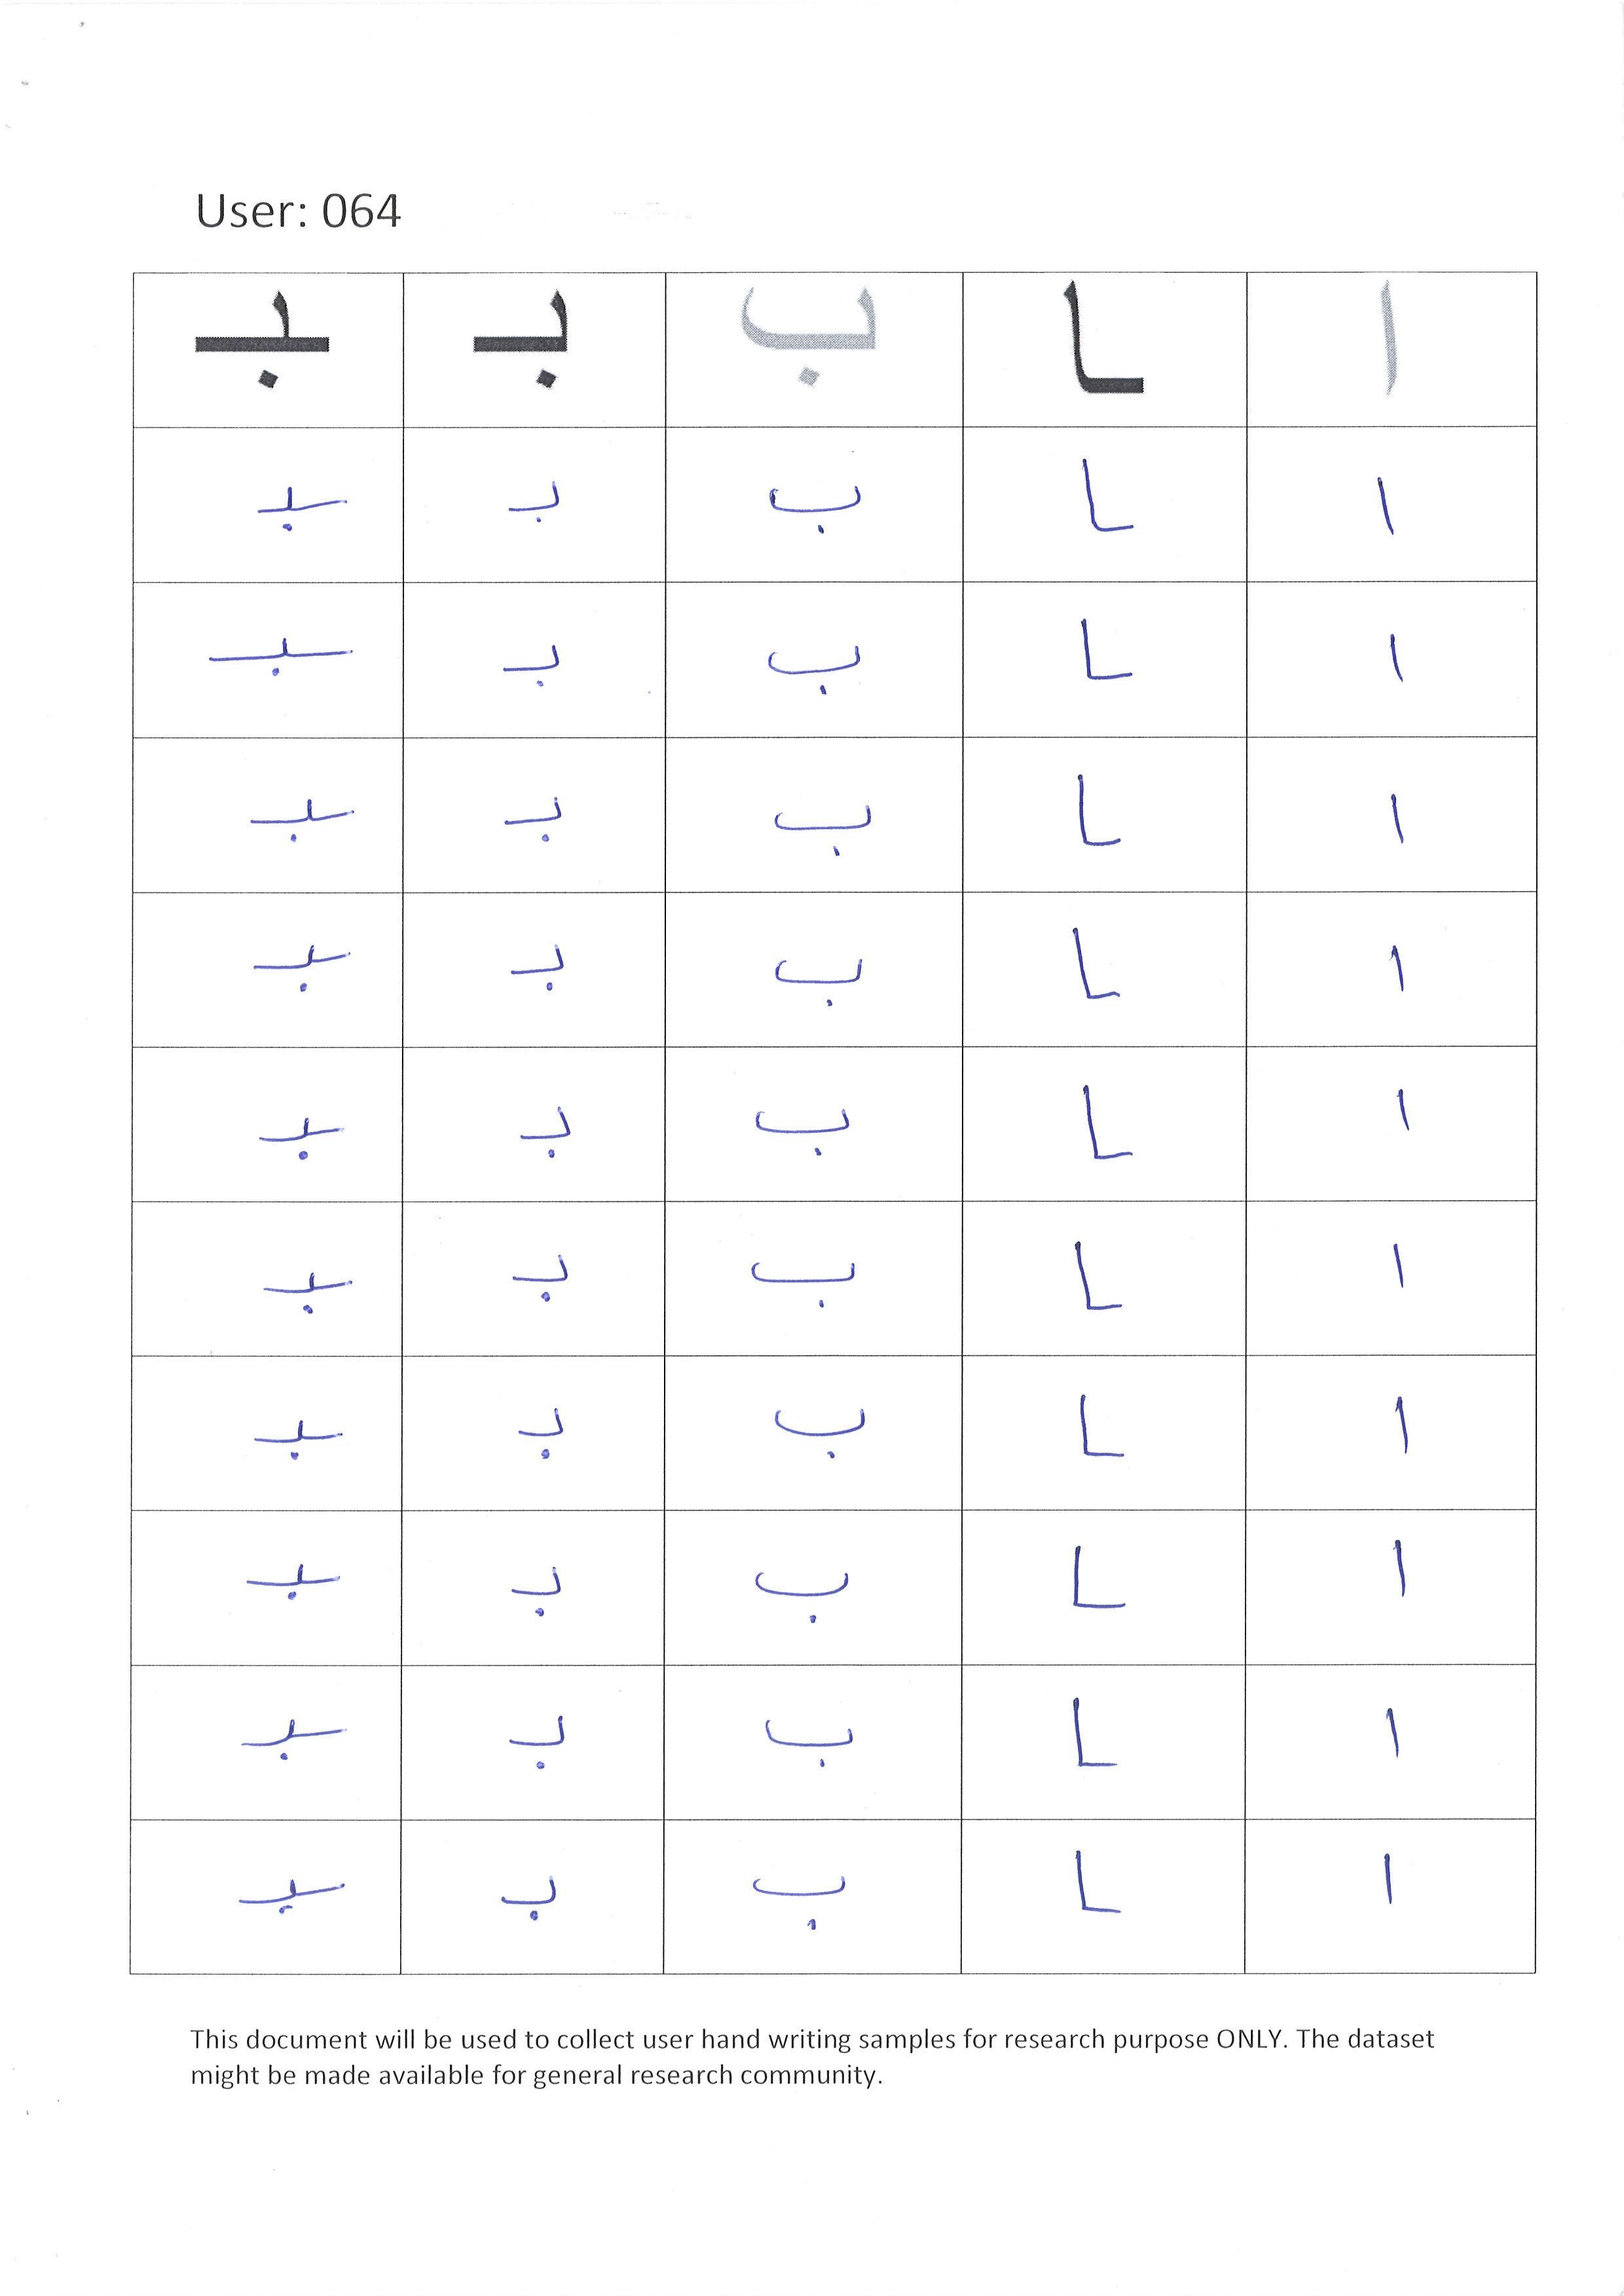 User: 064
ا ـا ب بـ ـبـ
ا ـا ب بـ ـبـ
ا ـا ب بـ ـبـ
ا ـا ب بـ ـبـ
ا ـا ب بـ ـبـ
ا ـا ب بـ ـبـ
ا ـا ب بـ ـبـ
ا ـا ب بـ ـبـ
ا ـا ب بـ ـبـ
ا ـا ب بـ ـبـ
ا ـا ب بـ ـبـ
This document will be used to collect user hand writing samples for research purpose ONLY. The dataset
might be made available for general research community.